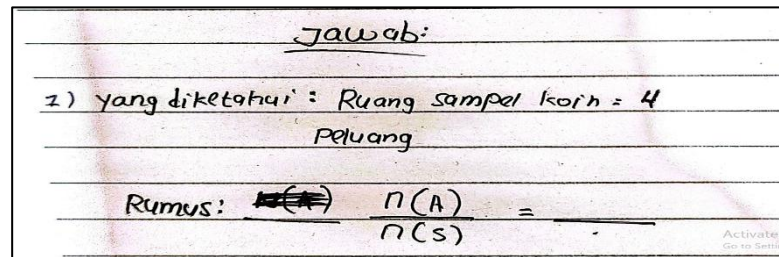 Jawab:
1) yang diketahui : Ruang sampel koin = 4
Peluang
Rumus: n(A) / n(S) = 
Activate
Go to Setti